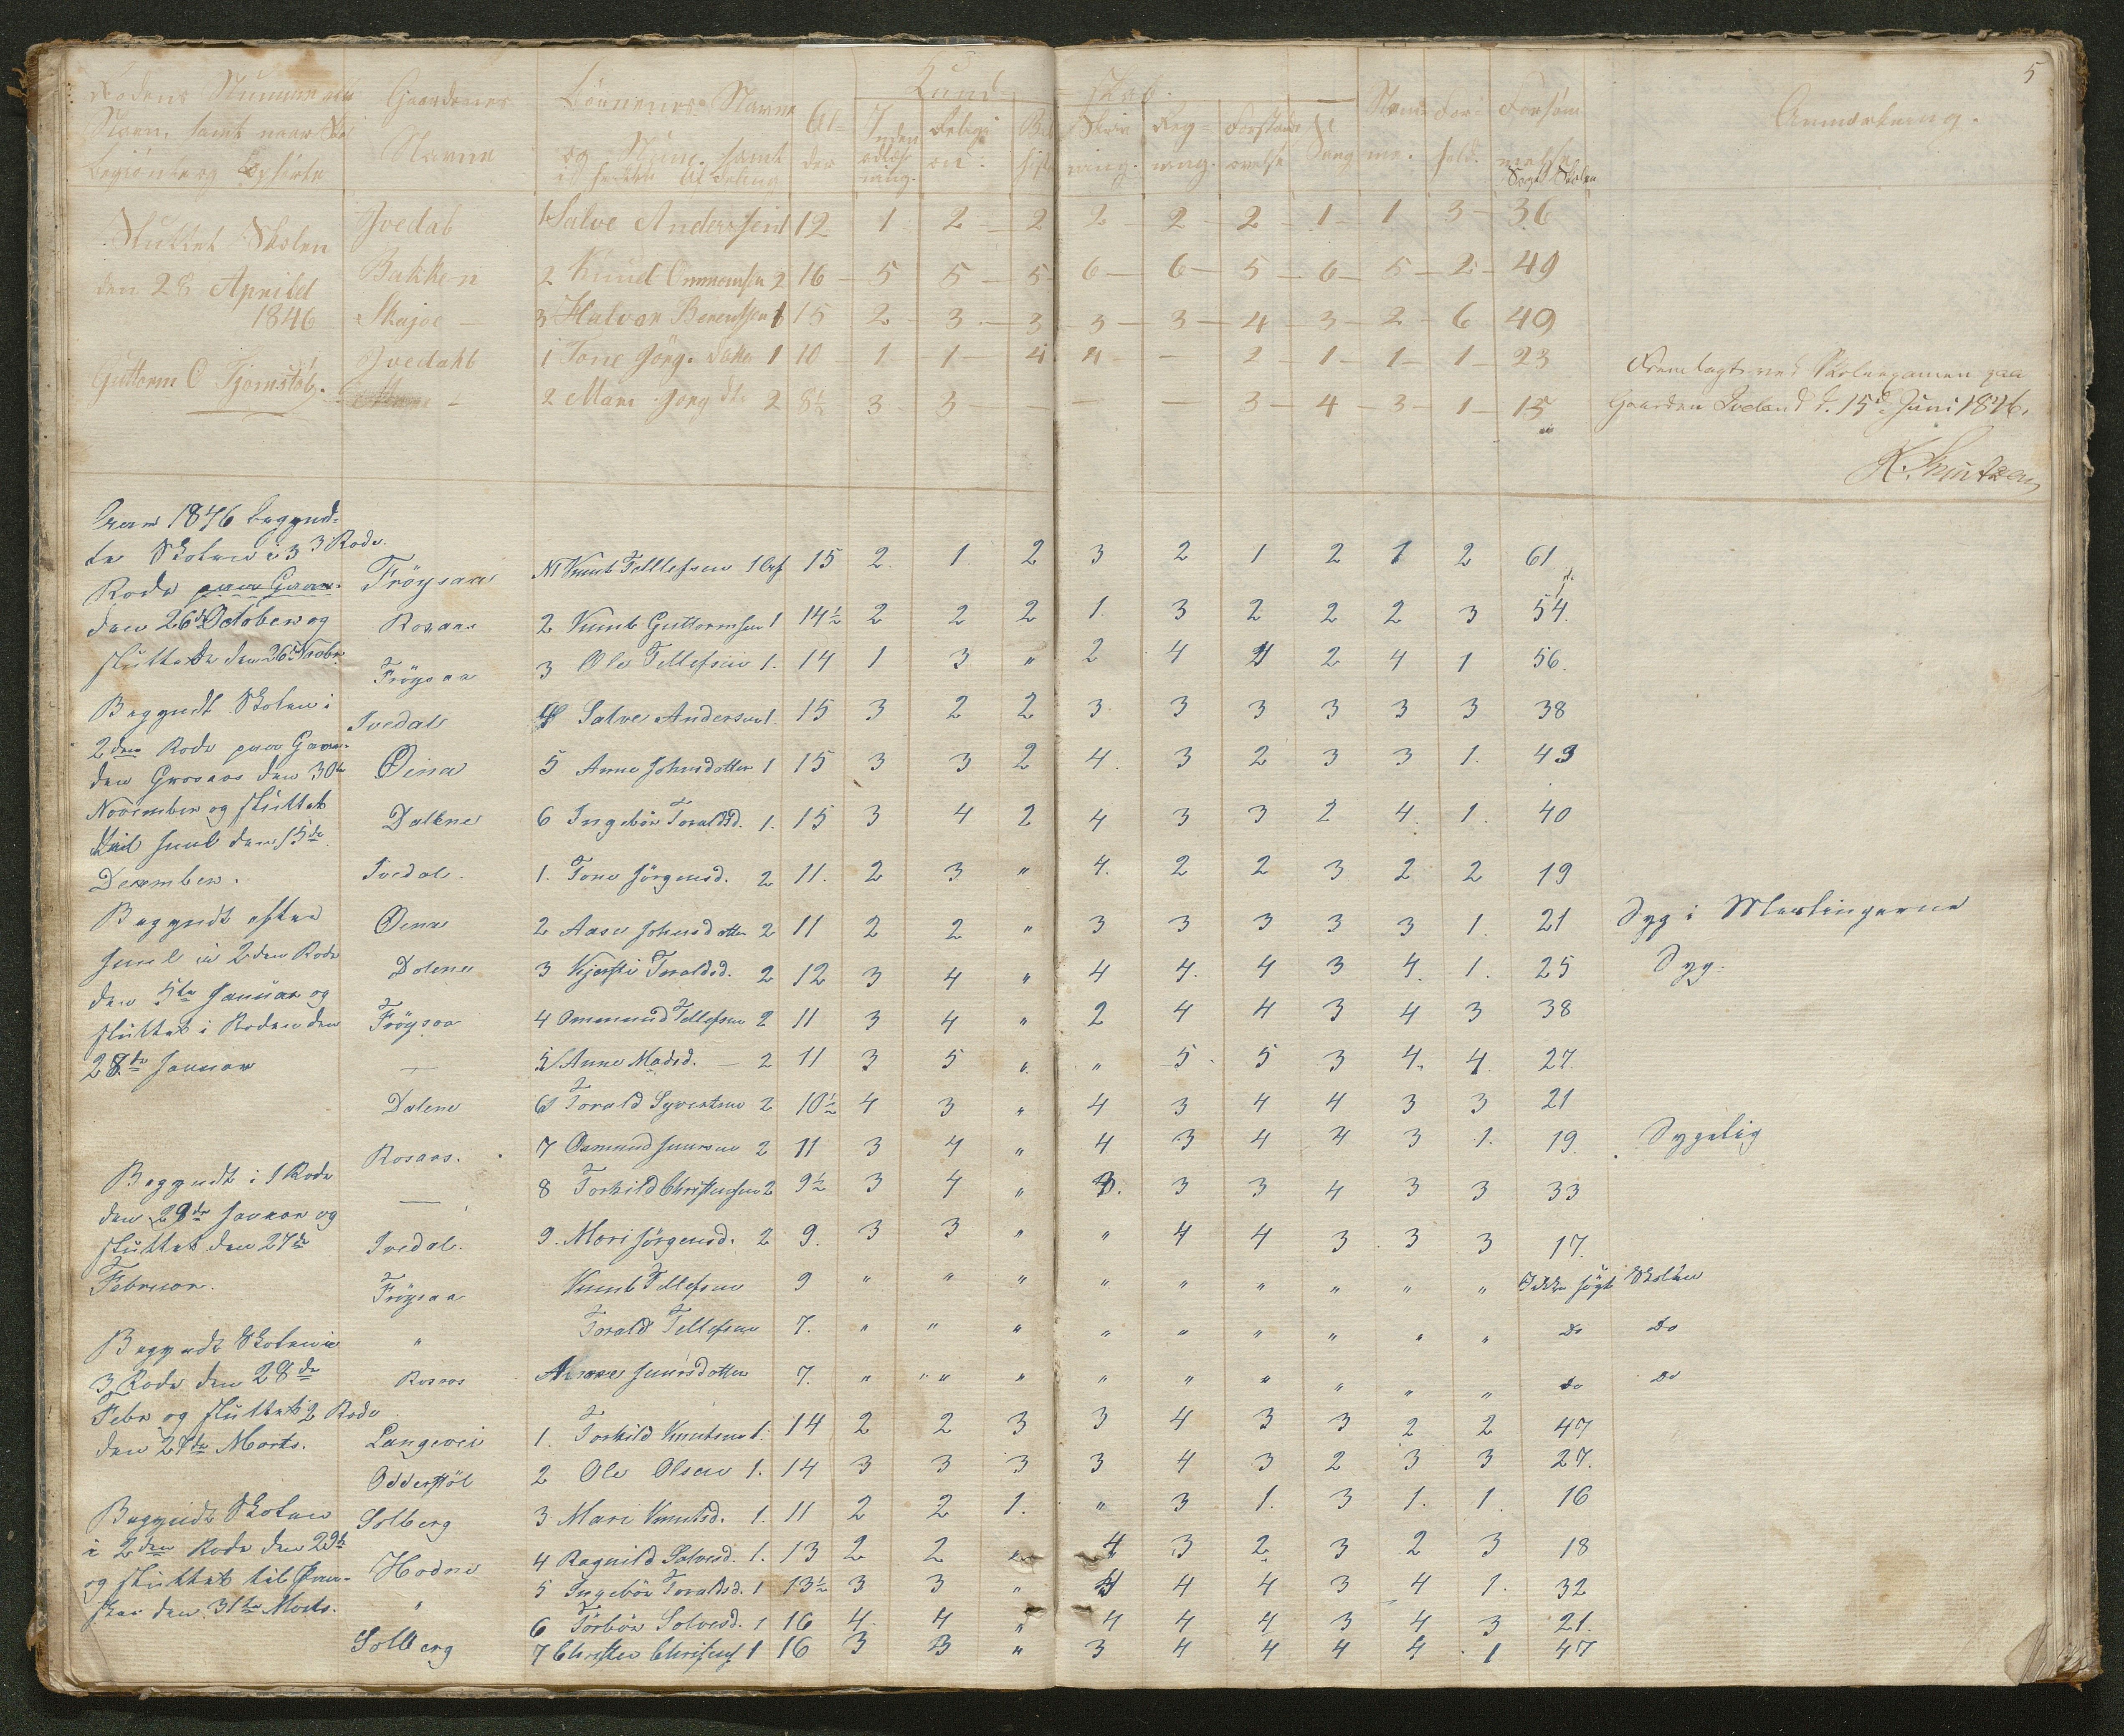 5
Rodens Nummer og Gaardenes Børnenes Navne Al- Kund skab. Anmærkning.
Navn, samt naar Navne og Num. samt der Inden Religi Skriv Reg- Forstands Sang
ning. ning. øvelse
Sluttet Skolen Ivedal 1 Salve Anderssen 1 12 1 2 2 2 2 2 1 1 3 36
den 28 April Bakken 2 Knud Ommomsen 2 16 5 5 5 6 6 5 6 5 2 49
1846 Skajee 3 Halvor Berentsen 1 15 2 3 3 3 3 4 3 2 6 49
Guttorm O Fjermstøl. Ivedahl 1 Tone Jørg. Datter 1 10 1 1 4 4 — 2 1 1 1 23 Fremlagt ved Skoleexamen paa
— 2 Mari Jørg Dtr 2 8½ 3 3 — — — 3 4 3 1 15 Gaarden Iveland d. 15de Juni 1846.
K. Knutzen
Aar 1846 begynd-
te Skolen i 3 3 Rode. Frøysaa N1 Knut Tellefsen 1 15 2. 1. 2 3 2 1 2 1 2 61
Rode paa Gaar-
den 26 October og Rosaas 2 Knut Guttormsen 1 14½ 2 2 2 1. 3 2 2 2 3 54.
sluttede den 26 Novbr. Frøysaa 3 Ole Tellefsen 1. 14 1 3 " 2 4 4 2 4 1 56.
Begyndt Skolen i Ivedal 4 Salve Andersen 1. 15 3 2 2 3 3 3 3 3 3 38
2den Rode paa Gaar-
den Grosaas den 30te Øina 5 Anne Johnsdotter 1 15 3 3 2 4. 3 2 3 3 1. 43
November og sluttet Dallene 6 Ingebør Toraldsd. 1. 15 3 4 2 4 3 3 2 4. 1. 40
til Juul den 15de
December. Ivedal. 1. Tone Jørgensd. 2 11. 2 3 " 4. 2 2 3 2 2 19
Begyndt efter Øina 2 Aase Johnsdotter 2 11 2 2 " 3 3 3 3 3 1. 21 Syg i Meslingerne
Juul i 2den Rode Dolene 3 Kjersti Toraldsd. 2 12 3 4 " 4 4. 4 3 4. 1. 25 Syg.
den 5te Januar og
sluttet i Roden den Frøysaa 4 Ommund Tellefsen 2 11 3 4 " 2 4 4 3 4 3 38
28de Januar — 5 Anne Madsd. — 2 11 3 5 " " 5 5 3 4. 4. 27.
Dalene 6 Torald Syvertsen 2 10½ 4 3 " 4 3 4 4 3 3 21
Rosaas. 7 Osmund Juursen 2 11 3 4 " 4 3 4 4 3 1. 19. Sygelig
Begyndt i 1 Rode — 8 Torkild Christensen 2 9½ 3 4 " 3. 3 3 4 3 3 33
den 29de Januar og
sluttet den 27de Ivedal. 9. Mari Jørgensd. 2 9. 3 3 " " 4 4 3 3 3 17.
Februar. Frøysaa Knut Tellefsen 9 " " " " " " " " " Ikke søgt Skolen
Begyndt Skolen i " Torald Tellefsen 7. " " " " " " " " " Do Do
3 Rode den 28de Rosaas Juursdotter 7. " " " " " " " " " " Do Do
Febr og sluttet 2 Rode
den 27de Marts. Langevei 1. Torkild Knutsen 1. 14 2 2 3 3 4 3 3 2 2 47
Odderstøl 2 Ole Olsen 1. 14 3 3 3 3 4 3 2 3 3 27.
Begyndt Skolen Solberg 3 Mari Knutsd. 1. 11 2 2 1. " 3 1. 3 1. 1. 16
i 2den Rode den 29de Hodne 4 Ragnild Salvesd. 1. 13 2 2 " 4 3 2. 3 2 3 18
og sluttet til Paa- 5 Ingebør Toraldsd. 1 13½ 3 3 " 4 4 4 3 4 1. 32
ske den 31te Marts. " 6 Tørbør Solvesd. 1 16 4. 4 " 4 4 4 3 4 3 21.
Solberg 7 Christen Christens 1 16 3 3 " 3 4 4 4 4. 1 47